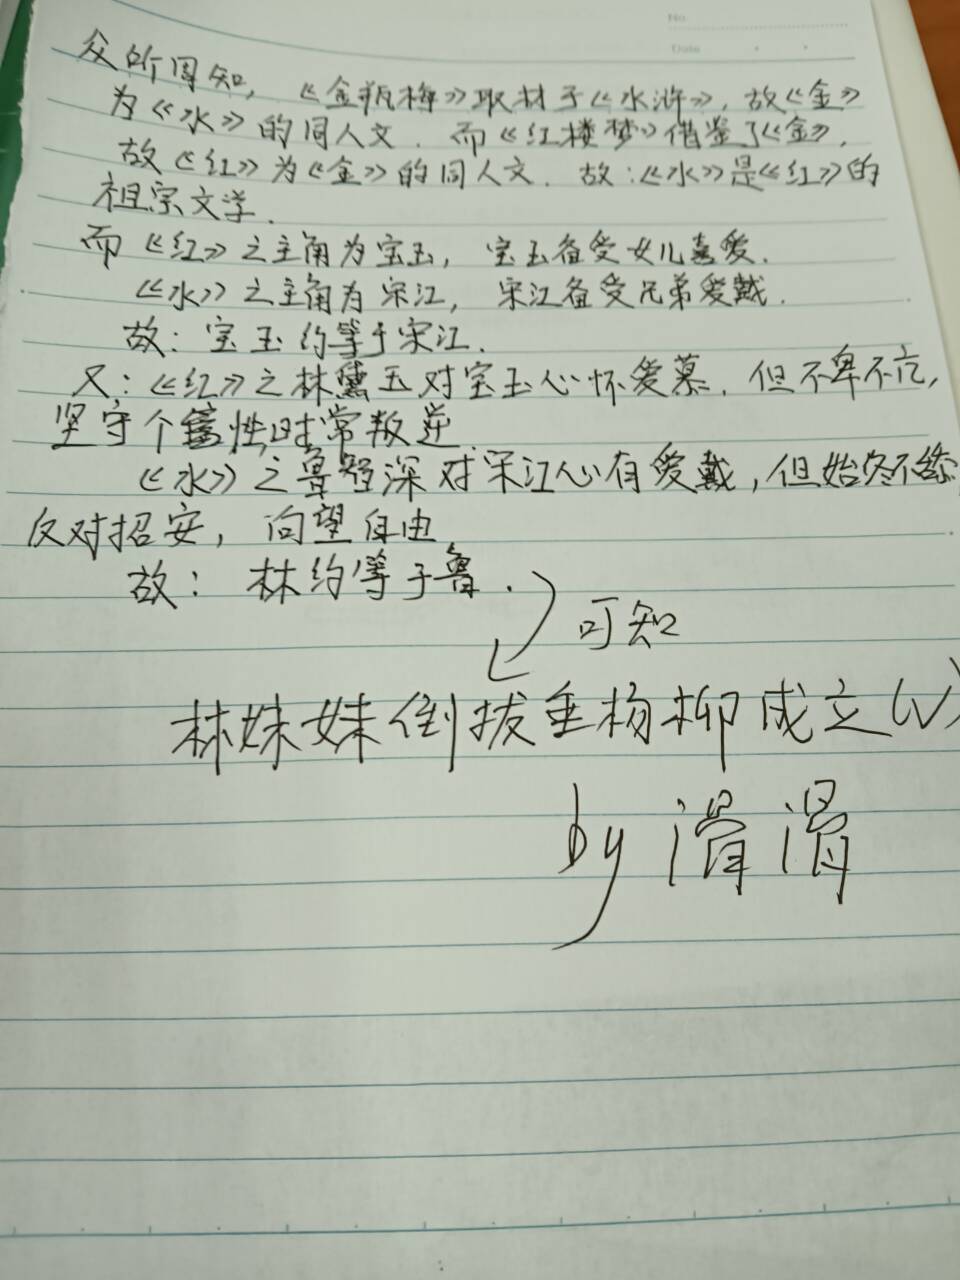 No
Date
众所周知，《金瓶梅》取材于《水浒》，故《金》
为《水》的同人文．而《红楼梦》借鉴了《金》，
故《红》为《金》的同人文．故：《水》是《红》的
祖宗文学．
而《红》之主角为宝玉，宝玉备受女儿喜爱．
《水》之主角为宋江，宋江备受兄弟爱戴．
故：宝玉约等于宋江．
又：《红》之林黛玉对宝玉心怀爱慕．但不卑不亢，
坚守个性时常叛逆
《水》之鲁智深对宋江心有爱戴，但始终不
反对招安，向望自由
故：林约等于鲁．
可知
林妹妹倒拔垂杨柳成立(√)
by 滑滑